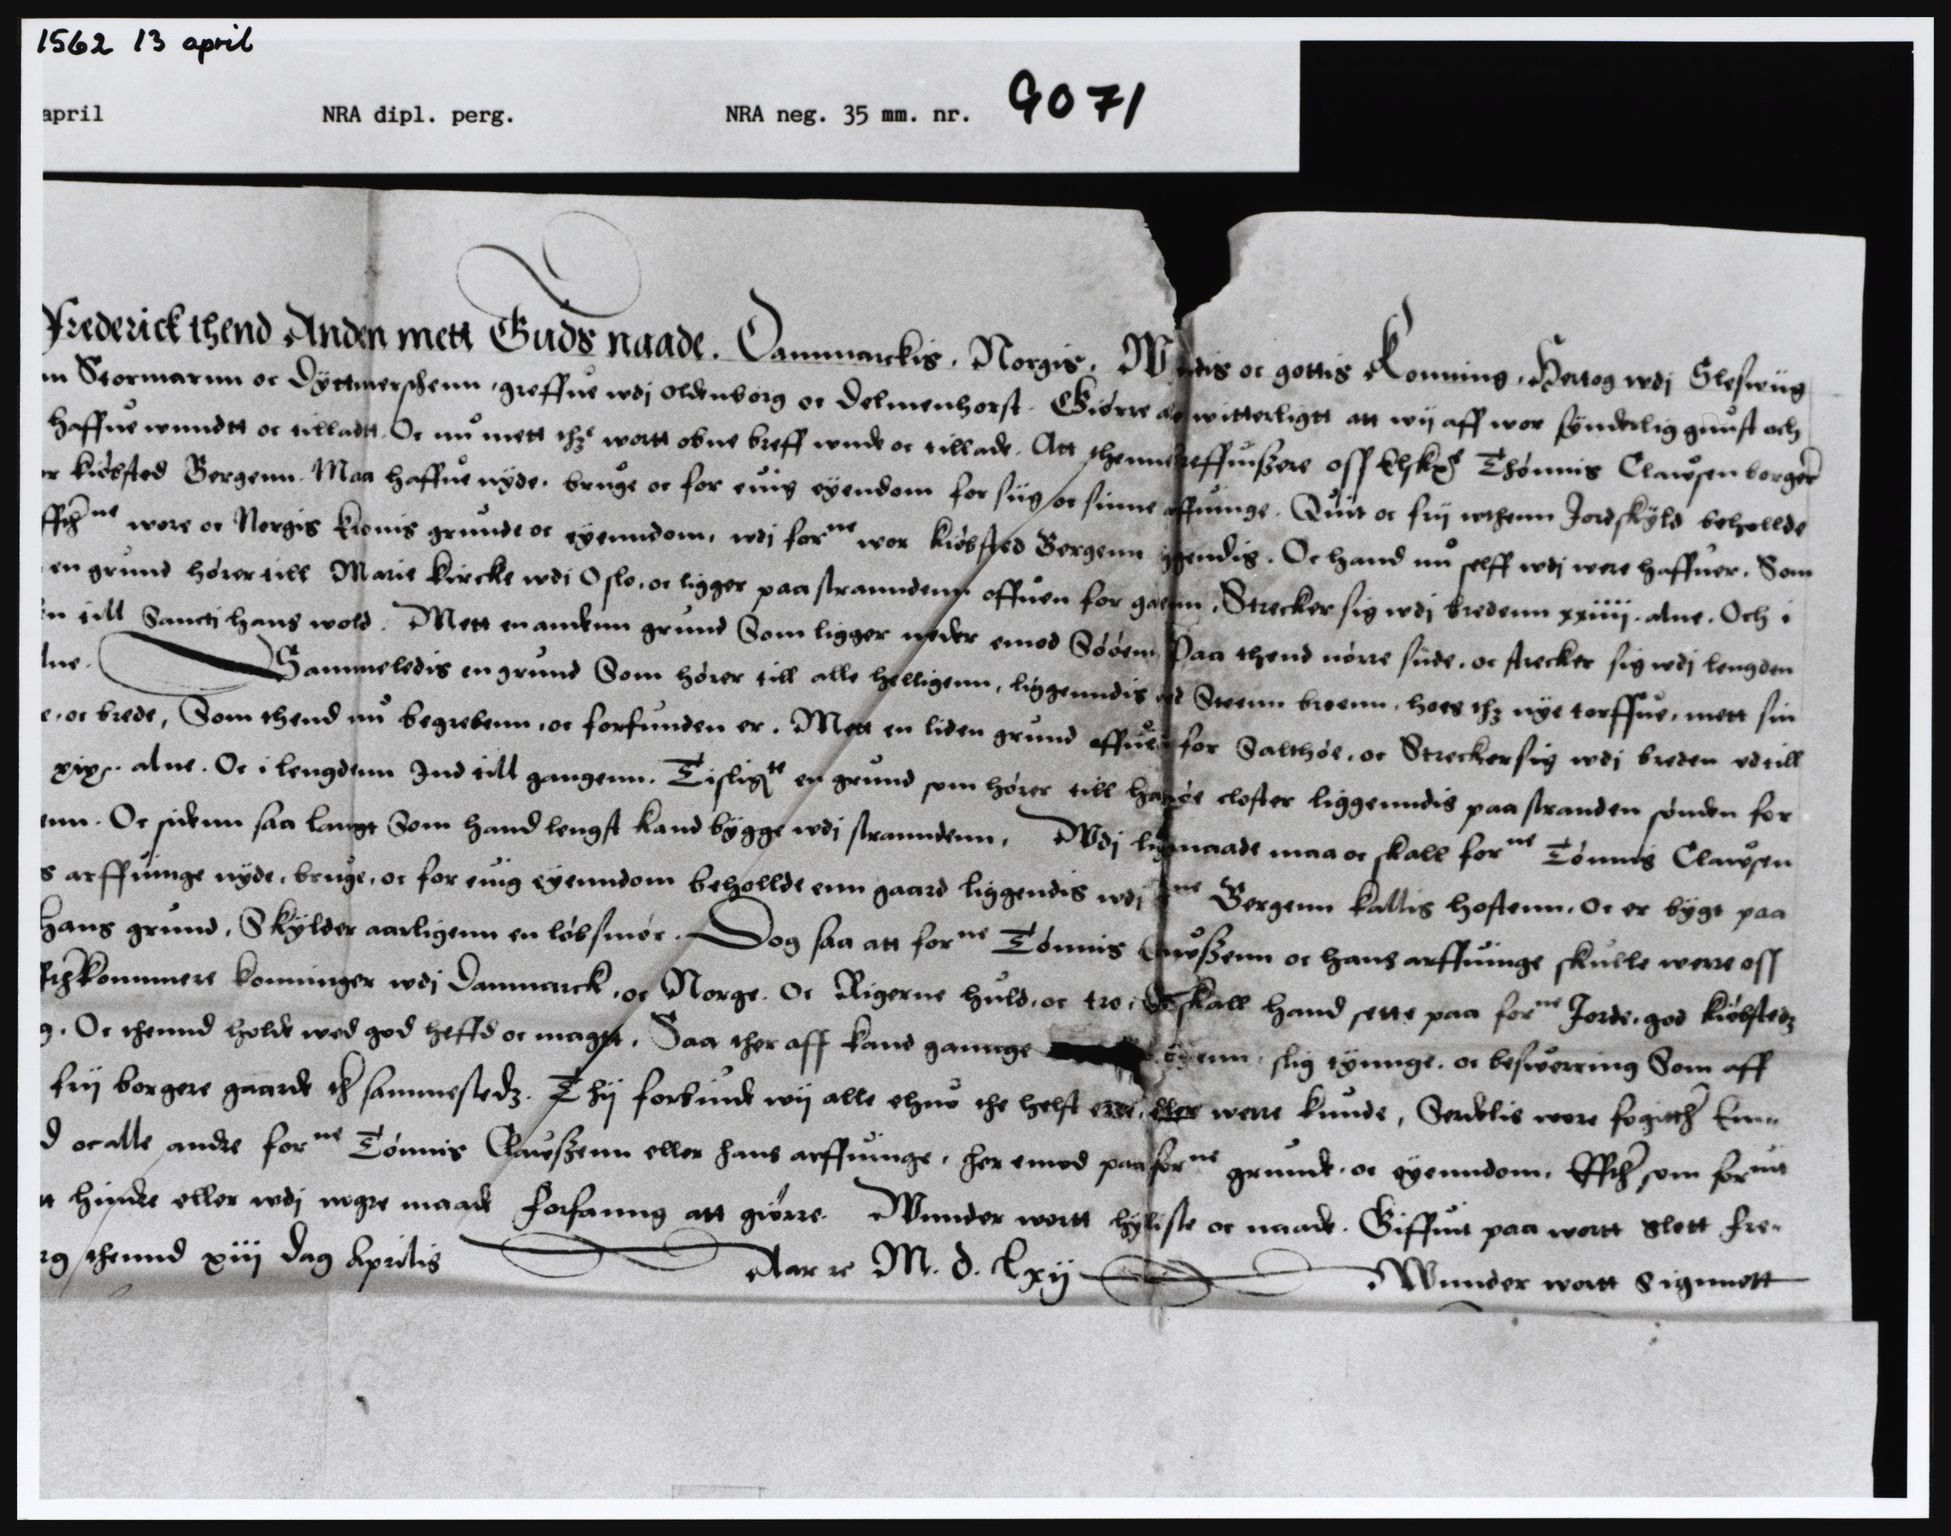 1562 13 april
april NRA dipl. perg. NRA neg. 35 mm. nr. 9071
Frederick thend Anden mett Guds naade. Dannmarckis, Norgis, W dis oc gottis Konning, Hertog wdj Sleswiig
nn Stormarnn oc Dyttmerschenn, greffue wdj Oldenborg oc Delmenhorst. Giørre witterligtt att wij aff wor synderlig gunst och
haffue wnndtt oc tilladtt. Oc nu mett thz wortt obne breff wnde oc tillade. Att thenne breffuiszere oss Elske Thønnis Clawsen borger
r kiøbsted Bergenn. Maa haffue nyde, bruge oc for euig eyendom for siig oc sinne affuinge. Quit oc frij wthenn Jordskyld behollde
ne wore oc Norgis kronis grunde oc eyenndom, wdj forne wor kiøbsted Bergenn ggendis. Oc hand nu selff wdj were haffuer. Som
en grund hører till Marie kircke wdj Oslo, oc ligger paa stranndenn offuen for ga nn, Strecker sig wdj bredenn xxiiii alne. Och i
n till Sancti hans wold. Mett en andenn grund Som ligger neder emod Søøenn Paa thend nørre side, oc strecker sig wdj lengden
lne. Sammeledis en grund Som hører till alle helligenn, liggenndis ved Steenn broenn, hoes thz nye torffue, mett sin
e, oc brede, Som thend nu begrebenn, oc forfunden er. Mett en liden grund offuen for Salthøe, oc Strecker sig wdj breden vd till
xix alne. Oc i lengdenn Ind till gangenn. Tisligte en grund som hører till h closter liggenndis paa stranden sønden for
enn. Oc sidenn saa langt Som hand lengst kand bygge wdj stranndenn, Wdj lig maade maa oc skall forne Tønnis Clawsen
s arffuinge nyde, bruge, oc for euig eyenndom behollde enn gaard liggendis wdj ne Bergenn kallis hostenn, Oc er bygt paa
hans grund, Skylder aarligenn en løbsmør. Dog saa att forne Tønnis Clawszenn oc hans arffuinge skulle were oss
kommere konninger wdj Danmarck, oc Norge. Oc Rigerne huld, oc tro, Oc skall hand sette paa forne Jorde, god kiøbstedz
g. Oc thennd holde wed god heffd oc magtt, Saa ther aff kand gannge enn, slig tynnge, oc besworring Som aff
frij borgere gaarde th sammestedz. Thij forbiude wij alle ehuo the helst ere, eller were kunde, Serdelis wore fogither Em
d oc alle andre forne Tønnis Clawszenn eller hans arffuinge, her emod paa forne grunde, oc eyenndom, Effther som foruit
tt hindre eller wdj nogre maade forfanng att giørre. Wnnder wortt hyliste oc naade. Giffuit paa wortt Slott Fre
rg thennd xiij dag Aprilis Aar re M. d. Lxij Wnnder wortt Signnett